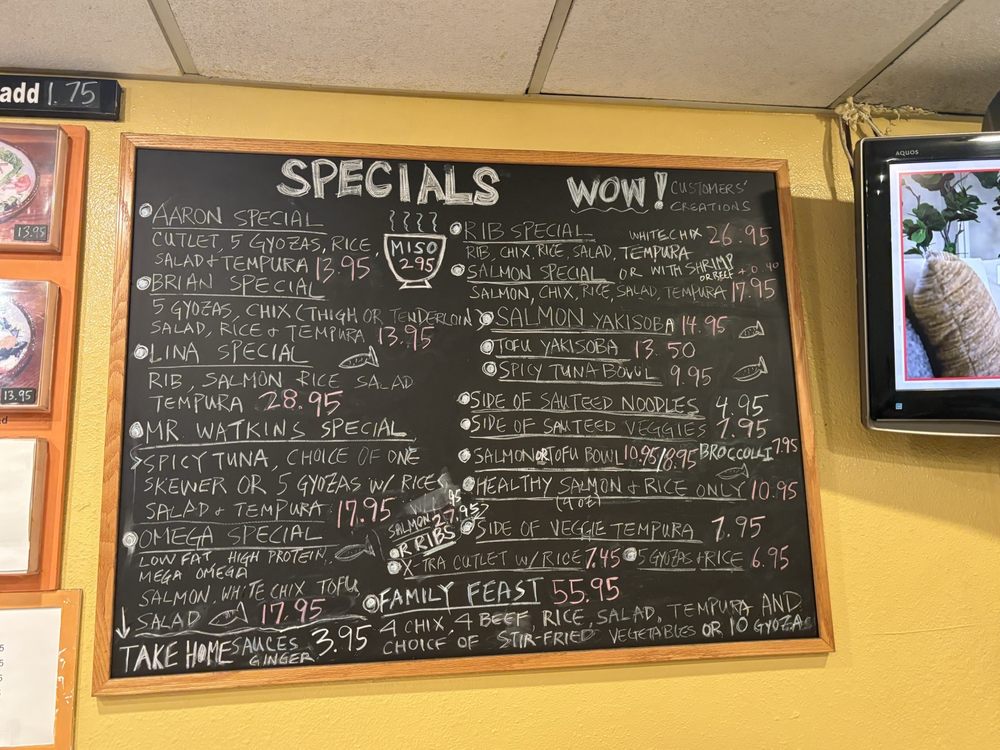 add 1.75
13.95
13.95
SPECIALS
WOW! CUSTOMERS'
CREATIONS
AARON SPECIAL
CUTLET, 5 GYOZAS, RICE
SALAD + TEMPURA 13.95
BRIAN SPECIAL
5 GYOZAS, CHIX (THIGH OR TENDERLOIN)
SALAD, RICE + TEMPURA 13.95
LINA SPECIAL
RIB, SALMON RICE SALAD
TEMPURA 28.95
MR WATKINS SPECIAL
SPICY TUNA, CHOICE OF ONE
SKEWER OR 5 GYOZAS W/ RICE
SALAD + TEMPURA 17.95
OMEGA SPECIAL
LOW FAT HIGH PROTEIN,
MEGA OMEGA
SALMON, WHITE CHIX TOFU,
SALAD 17.95
TAKE HOME SAUCES 3.95
GINGER
MISO
2.95
RIB SPECIAL WHITE CHIX 26.95
RIB, CHIX, RICE, SALAD, TEMPURA
SALMON SPECIAL OR WITH SHRIMP
OR BEEF
SALMON, CHIX, RICE, SALAD, TEMPURA 17.95
SALMON YAKISOBA 14.95
TOFU YAKISOBA 13.50
SPICY TUNA BOWL 9.95
SIDE OF SAUTEED NOODLES 4.95
SIDE OF SAUTEED VEGGIES 7.95
SALMON OR TOFU BOWL 10.95/8.95 BROCCOLLI 7.95
HEALTHY SALMON + RICE ONLY 10.95
(4 OZ)
SALMON 27.95
OR RIBS
SIDE OF VEGGIE TEMPURA 7.95
X-TRA CUTLET W/ RICE 7.45 5 GYOZAS + RICE 6.95
FAMILY FEAST 55.95
4 CHIX, 4 BEEF, RICE, SALAD, TEMPURA AND
CHOICE OF STIR-FRIED VEGETABLES OR 10 GYOZAS
AQUOS